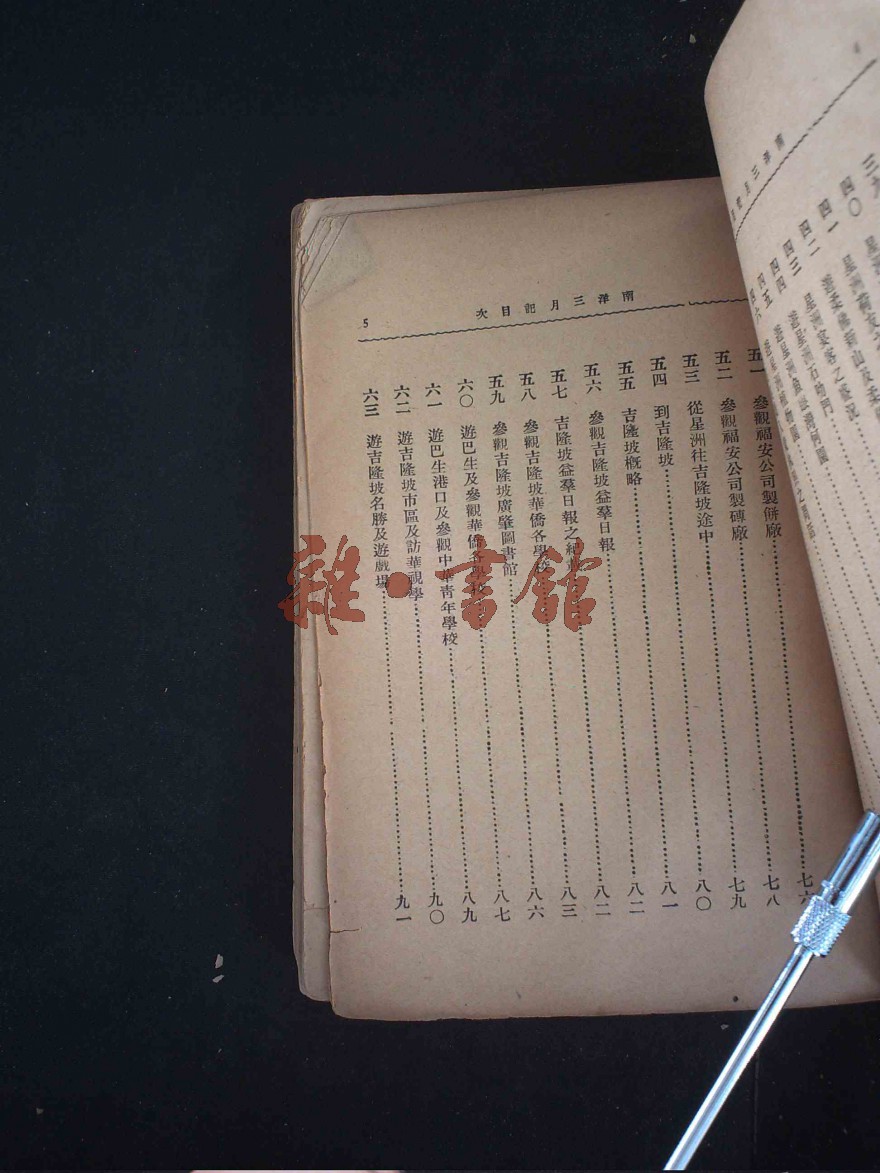 南洋三月記目次
5
五一 參觀福安公司製餅廠……七六
五二 參觀福安公司製磚廠……七八
五三 從星洲往吉隆坡途中……七九
五四 到吉隆坡……八〇
五五 吉隆坡概略……八一
五六 參觀吉隆坡益羣日報……八二
五七 吉隆坡益羣日報之紀……八二
五八 參觀吉隆坡華僑各學校……八三
五九 參觀吉隆坡廣肇圖書館……八六
六〇 遊巴生及參觀華僑各學校……八七
六一 遊巴生港口及參觀中華靑年學校……八九
六二 遊吉隆坡市區及訪華視學……九〇
六三 遊吉隆坡名勝及遊戲場……九一
南洋三月
三九
四〇
四一
四二 星洲宴客之盛況
四三 星洲石叻門
四四
四五
四六
雜·書館